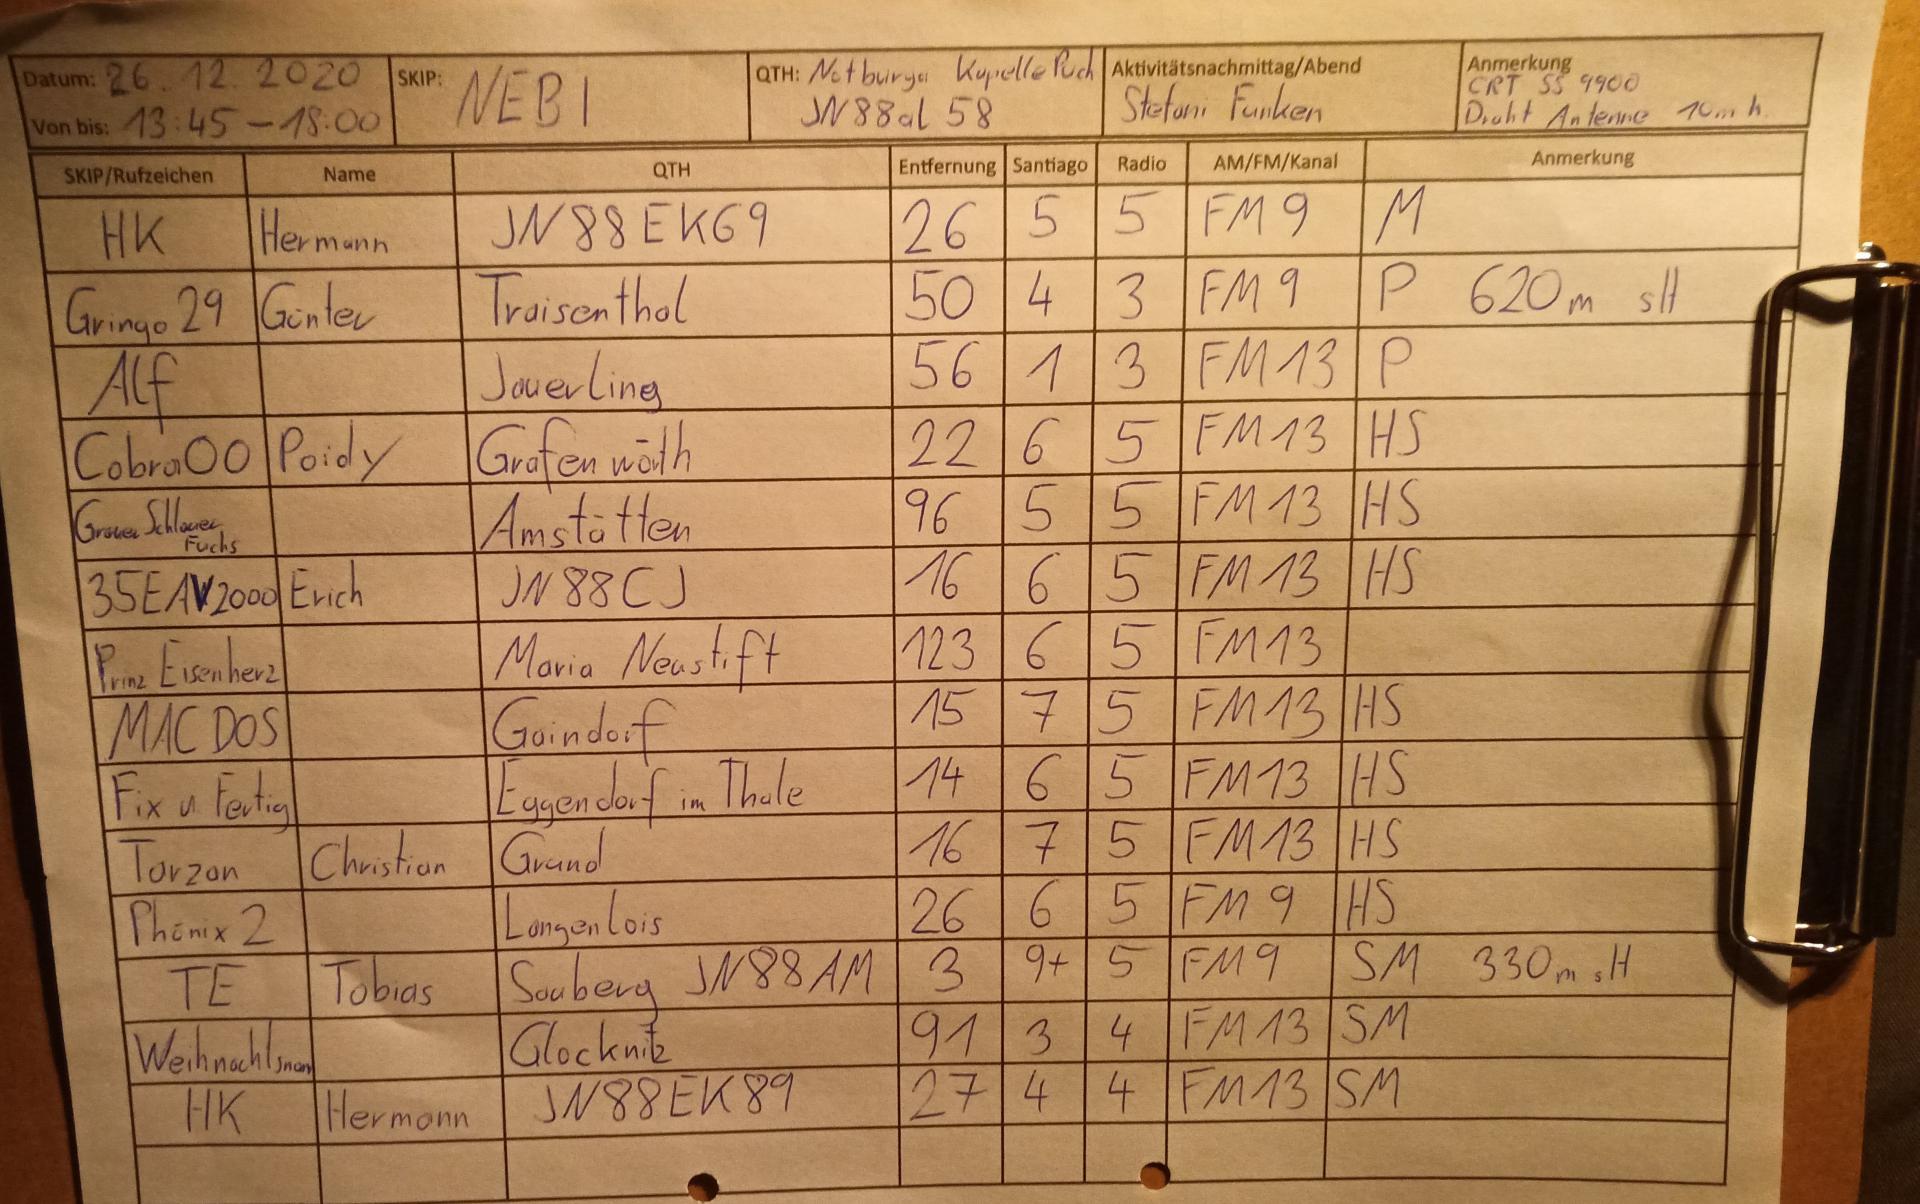 Datum: 26.12.2020 SKIP: NEBI QTH: Notburga Kapelle Puch Aktivitätsnachmittag/Abend Anmerkung
CRT SS 9900
Von bis: 13:45 - 18:00 JN88al 58 Stefani Funken Draht Antenne 10m h.
SKIP/Rufzeichen Name QTH Entfernung Santiago Radio AM/FM/Kanal Anmerkung
HK Hermann JN88EK69 26 5 5 FM 9 M
Gringo 29 Günter Traisenthal 50 4 3 FM 9 P 620m sH
Alf Jauerling 56 1 3 FM 13 P
Cobra00 Poidy Grafenwöth 22 6 5 FM 13 HS
Grauer Schlauer Fuchs Amstätten 96 5 5 FM 13 HS
35EAV2000 Erich JN88CJ 16 6 5 FM 13 HS
Prinz Eisenherz Maria Neustift 123 6 5 FM 13
MAC DOS Gaindorf 15 7 5 FM 13 HS
Fix u. Fertig Eggendorf im Thale 14 6 5 FM 13 HS
Tarzan Christian Grund 16 7 5 FM 13 HS
Phönix 2 Langenlois 26 6 5 FM 9 HS
TE Tobias Sauberg JN88AM 3 9+ 5 FM 9 SM 330m sH
Weihnachtsman Glocknitz 91 3 4 FM 13 SM
HK Hermann JN88EK89 27 4 4 FM 13 SM